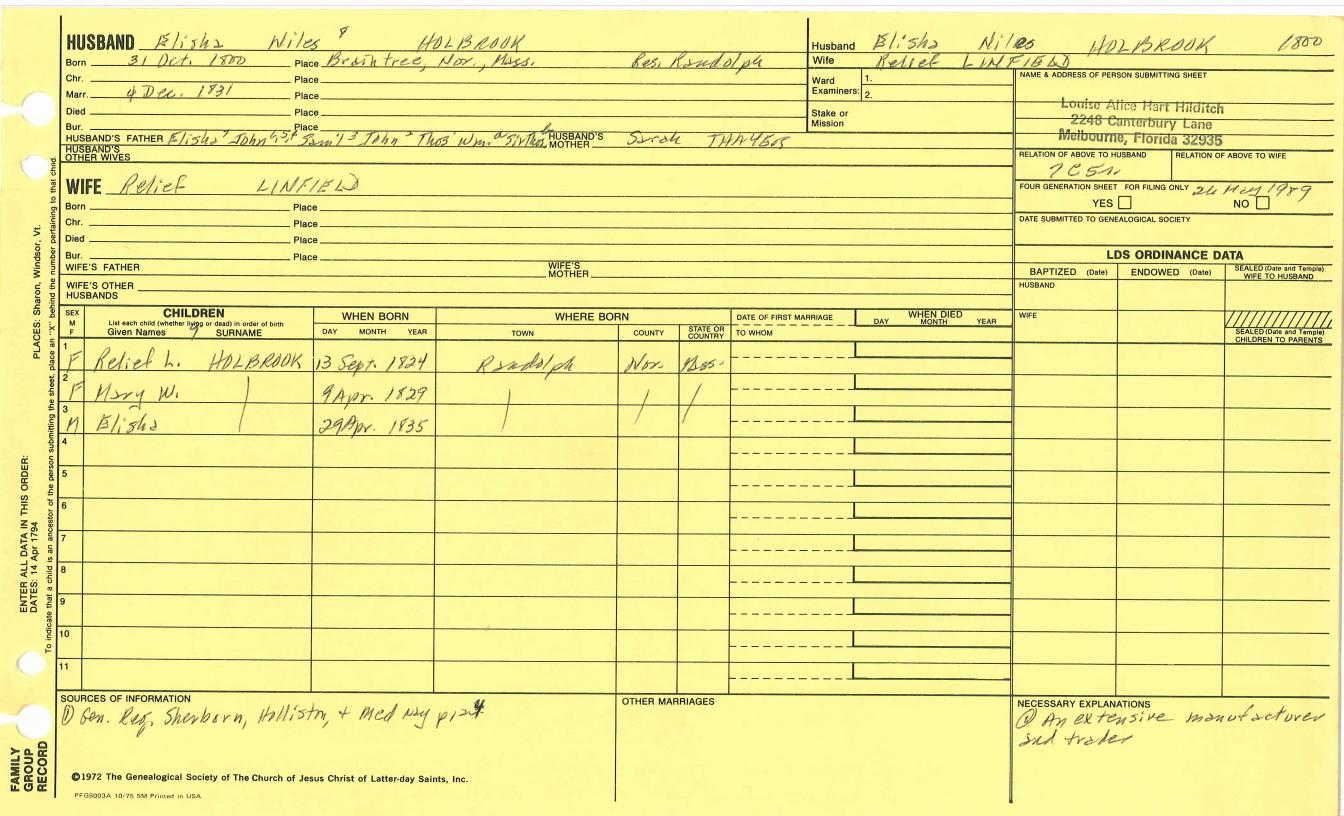 HUSBAND Elisha Niles 8 HOLBROOK
Born 31 Oct. 1800 Place Braintree, Nor., Mass. Res. Randolph
Chr. Place
Marr. 4 Dec. 1831 Place
Died Place
Bur. Place
HUSBAND'S FATHER Elisha 7 John 6,5,4 Sam'l 3 John 2 Thos 1 Wm. HUSBAND'S MOTHER Sarah THAYER
HUSBAND'S OTHER WIVES
Husband Elisha Niles HOLBROOK 1800
Wife Relief LINFIELD
Ward Examiners: 1.
2.
Stake or Mission
NAME & ADDRESS OF PERSON SUBMITTING SHEET
Louise Alice Hart Hilditch
2248 Canterbury Lane
Melbourne, Florida 32935
RELATION OF ABOVE TO HUSBAND RELATION OF ABOVE TO WIFE
FOUR GENERATION SHEET FOR FILING ONLY 26 May 1989
YES NO
DATE SUBMITTED TO GENEALOGICAL SOCIETY
WIFE Relief LINFIELD
Born Place
Chr. Place
Died Place
Bur. Place
WIFE'S FATHER WIFE'S MOTHER
WIFE'S OTHER HUSBANDS
LDS ORDINANCE DATA
BAPTIZED (Date) ENDOWED (Date) SEALED (Date and Temple) WIFE TO HUSBAND
HUSBAND
WIFE
SEALED (Date and Temple) CHILDREN TO PARENTS
SEX M F
CHILDREN
List each child (whether living or dead) in order of birth
Given Names 9 SURNAME
WHEN BORN
DAY MONTH YEAR
WHERE BORN
TOWN COUNTY STATE OR COUNTRY
DATE OF FIRST MARRIAGE
TO WHOM
WHEN DIED
DAY MONTH YEAR
1 F Relief L. HOLBROOK 13 Sept. 1824 Randolph Nor. Mass.
2 F Mary W. 9 Apr. 1829
3 M Elisha 29 Apr. 1835
4
5
6
7
8
9
10
11
SOURCES OF INFORMATION
① Gen. Reg. Sherborn, Holliston, + Medway p 124
OTHER MARRIAGES
NECESSARY EXPLANATIONS
① An extensive manufacturer
and trader
©1972 The Genealogical Society of The Church of Jesus Christ of Latter-day Saints, Inc.
PFGS003A 10/75 5M Printed in USA
FAMILY GROUP RECORD
ENTER ALL DATA IN THIS ORDER:
DATES: 14 Apr 1794
PLACES: Sharon, Windsor, Vt.
To indicate that a child is an ancestor of the person submitting the sheet, place an "X" behind the number pertaining to that child.